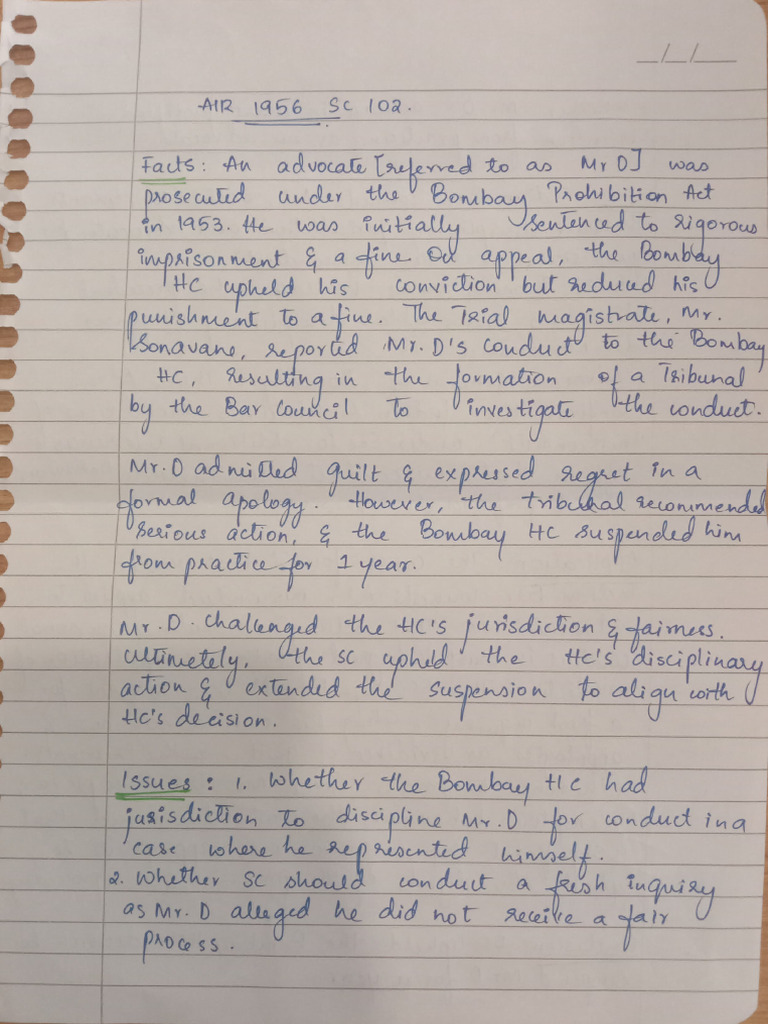 _/_/__
AIR 1956 SC 102.
Facts: An advocate [referred to as Mr D] was
prosecuted under the Bombay Prohibition Act
in 1953. He was initially sentenced to rigorous
imprisonment & a fine On appeal, the Bombay
HC upheld his conviction but reduced his
punishment to a fine. The Trial magistrate, Mr.
Sonavane, reported Mr. D's conduct to the Bombay
HC, resulting in the formation of a Tribunal
by the Bar Council to investigate the conduct.
Mr. D admitted guilt & expressed regret in a
formal apology. However, the tribunal recommended
serious action, & the Bombay HC suspended him
from practice for 1 year.
Mr. D. challenged the HC's jurisdiction & fairness.
Ultimetely, the SC upheld the HC's disciplinary
action & extended the suspension to align with
HC's decision.
Issues : 1. Whether the Bombay HC had
jurisdiction to discipline Mr. D for conduct in a
case where he represented himself.
2. Whether SC should conduct a fresh inquiry
as Mr. D alleged he did not receive a fair
process.